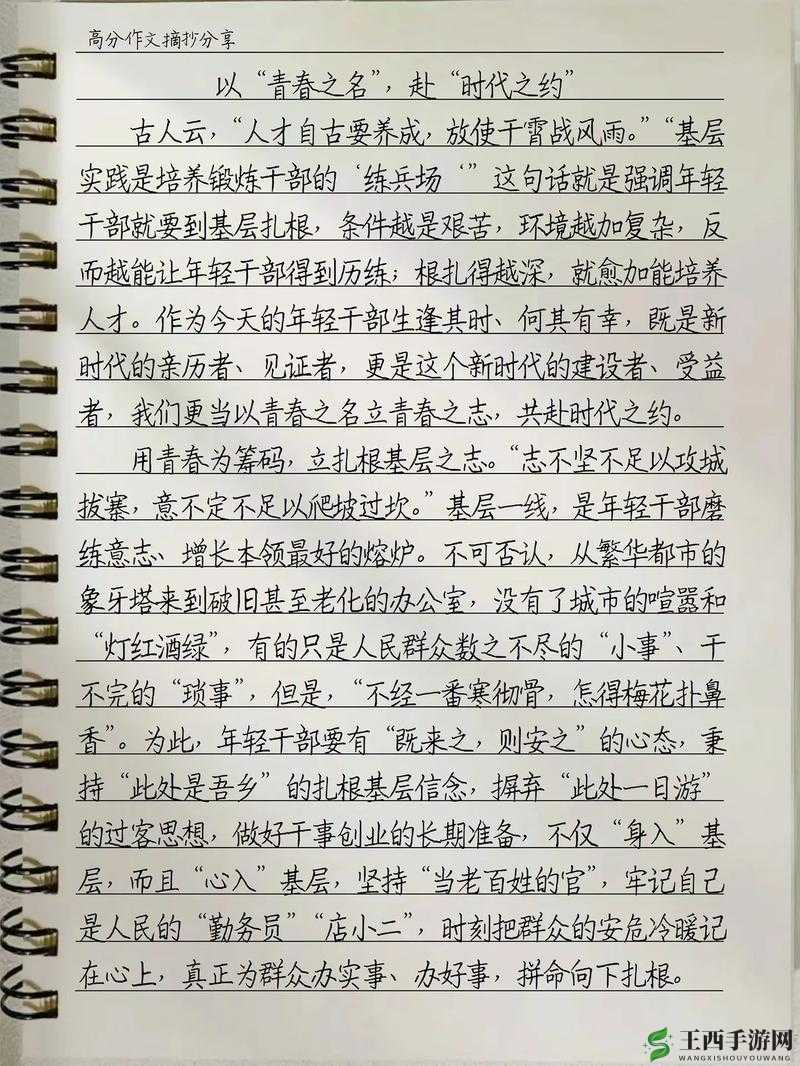 高分作文摘抄分享
以“青春之名”，赴“时代之约”
古人云，“人才自古要养成，放使干霄战风雨。”“基层
实践是培养锻炼干部的‘练兵场‘”这句话就是强调年轻
干部就要到基层扎根，条件越是艰苦，环境越加复杂，反
而越能让年轻干部得到历练；根扎得越深，就愈加能培养
人才。作为今天的年轻干部生逢其时、何其有幸，既是新
时代的亲历者、见证者，更是这个新时代的建设者、受益
者，我们更当以青春之名立青春之志，共赴时代之约。
用青春为筹码，立扎根基层之志。“志不坚不足以攻城
拔寨，意不定不足以爬坡过坎。”基层一线，是年轻干部磨
练意志、增长本领最好的熔炉。不可否认，从繁华都市的
象牙塔来到破旧甚至老化的办公室，没有了城市的喧嚣和
“灯红酒绿”，有的只是人民群众数之不尽的“小事”、干
不完的“琐事”，但是，“不经一番寒彻骨，怎得梅花扑鼻
香”。为此，年轻干部要有“既来之，则安之”的心态，秉
持“此处是吾乡”的扎根基层信念，摒弃“此处一日游”
的过客思想，做好干事创业的长期准备，不仅“身入”基
层，而且“心入”基层，坚持“当老百姓的官”，牢记自己
是人民的“勤务员”“店小二”，时刻把群众的安危冷暖记
在心上，真正为群众办实事、办好事，拼命向下扎根。
王西手游网
WANGXISHOUYOUWANG